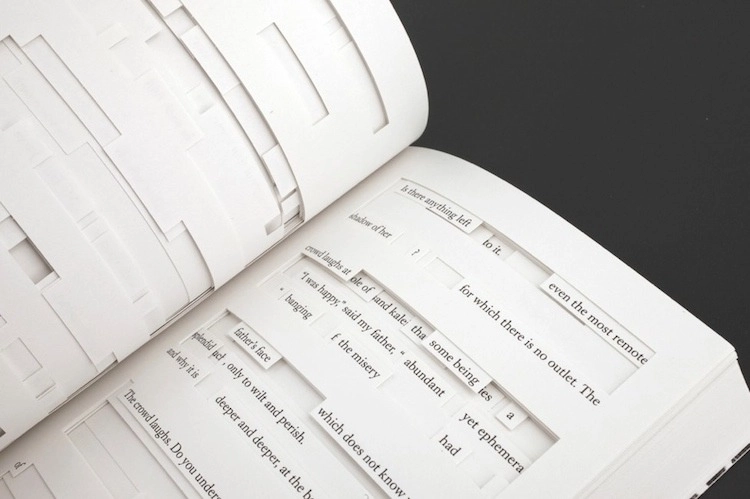 Is there anything left
to it.
even the most remote
shadow of her ? for which there is no outlet. The
crowd laughs at ole of and kalei tha some being es a
"I was happy," said my father, " abundant yet ephemera
" banging f the misery had
father's face which does not know
splendid only to wilt and perish.
and why it is deeper and deeper, at the b
The crowd laughs. Do you under